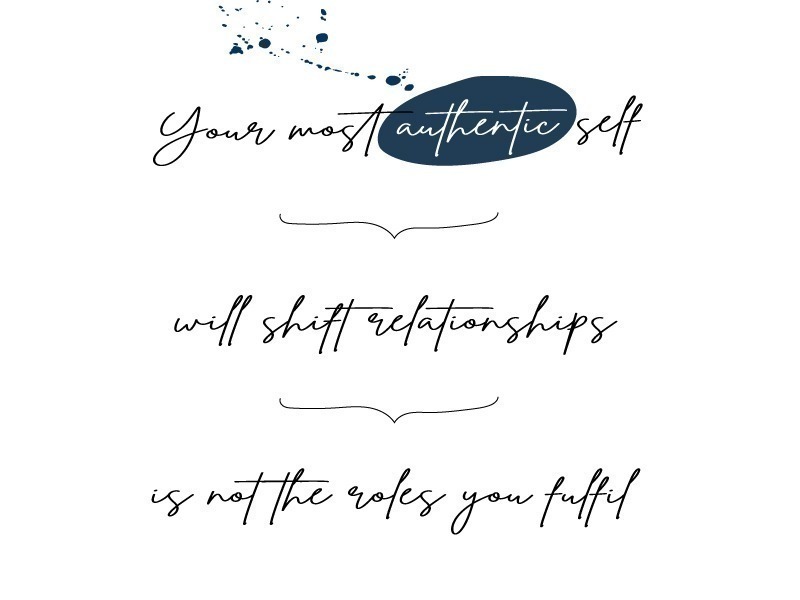 Your most authentic self
will shift relationships
is not the roles you fulfil